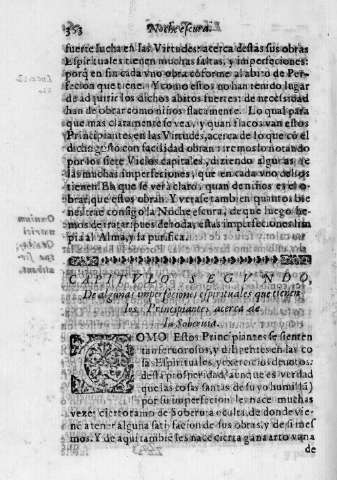 353 Noche escura.
fuerte lucha en las Virtudes: acerca destas sus obras
Espirituales tienen muchas faltas, y imperfeciones:
porq̃ en fin cada vno obra cõforme al abito de Per-
fecion que tiene. Y como estos no han tenido lugar
de adquirir los dichos abitos fuertes: de necessidad
han de obrar como niños flacamente. Lo qual para
que mas claramente se vea, y quan flacos van estos
Principiantes en las Virtudes, acerca de lo que cõ el
dicho gusto con facilidad obran: iremoslo notando
por los siete Vicios capitales, diziendo algunas de
las muchas imperfeciones, que en cada vno dellos
tienen. En que se verà claro, quan de niños es el o-
brar, que estos obran. Y verase tambien quantos bie
nes trae consigo la Noche escura, de que luego he-
mos de tratar, pues de todas estas imperfeciones lim
pia al Alma, y la purifica.
CAPITVLO SEGVNDO,
De algunas imperfeciones espirituales que tienen
los Principiantes, acerca de
la Soberuia.
COMO Estos Principiantes se sienten
tan feruorosos, y diligentes en las co
sas Espirituales, y exercicios deuotos:
desta prosperidad (aunque es verdad
que las cosas santas de suyo humillã)
por su imperfecion les nace muchas
vezes cierto ramo de Soberuia oculta, de donde vie-
nẽ a tener alguna satisfacion de sus obras, y de si mes
mos. Y de aqui tambiẽ les nace cierta gana arto vana
de